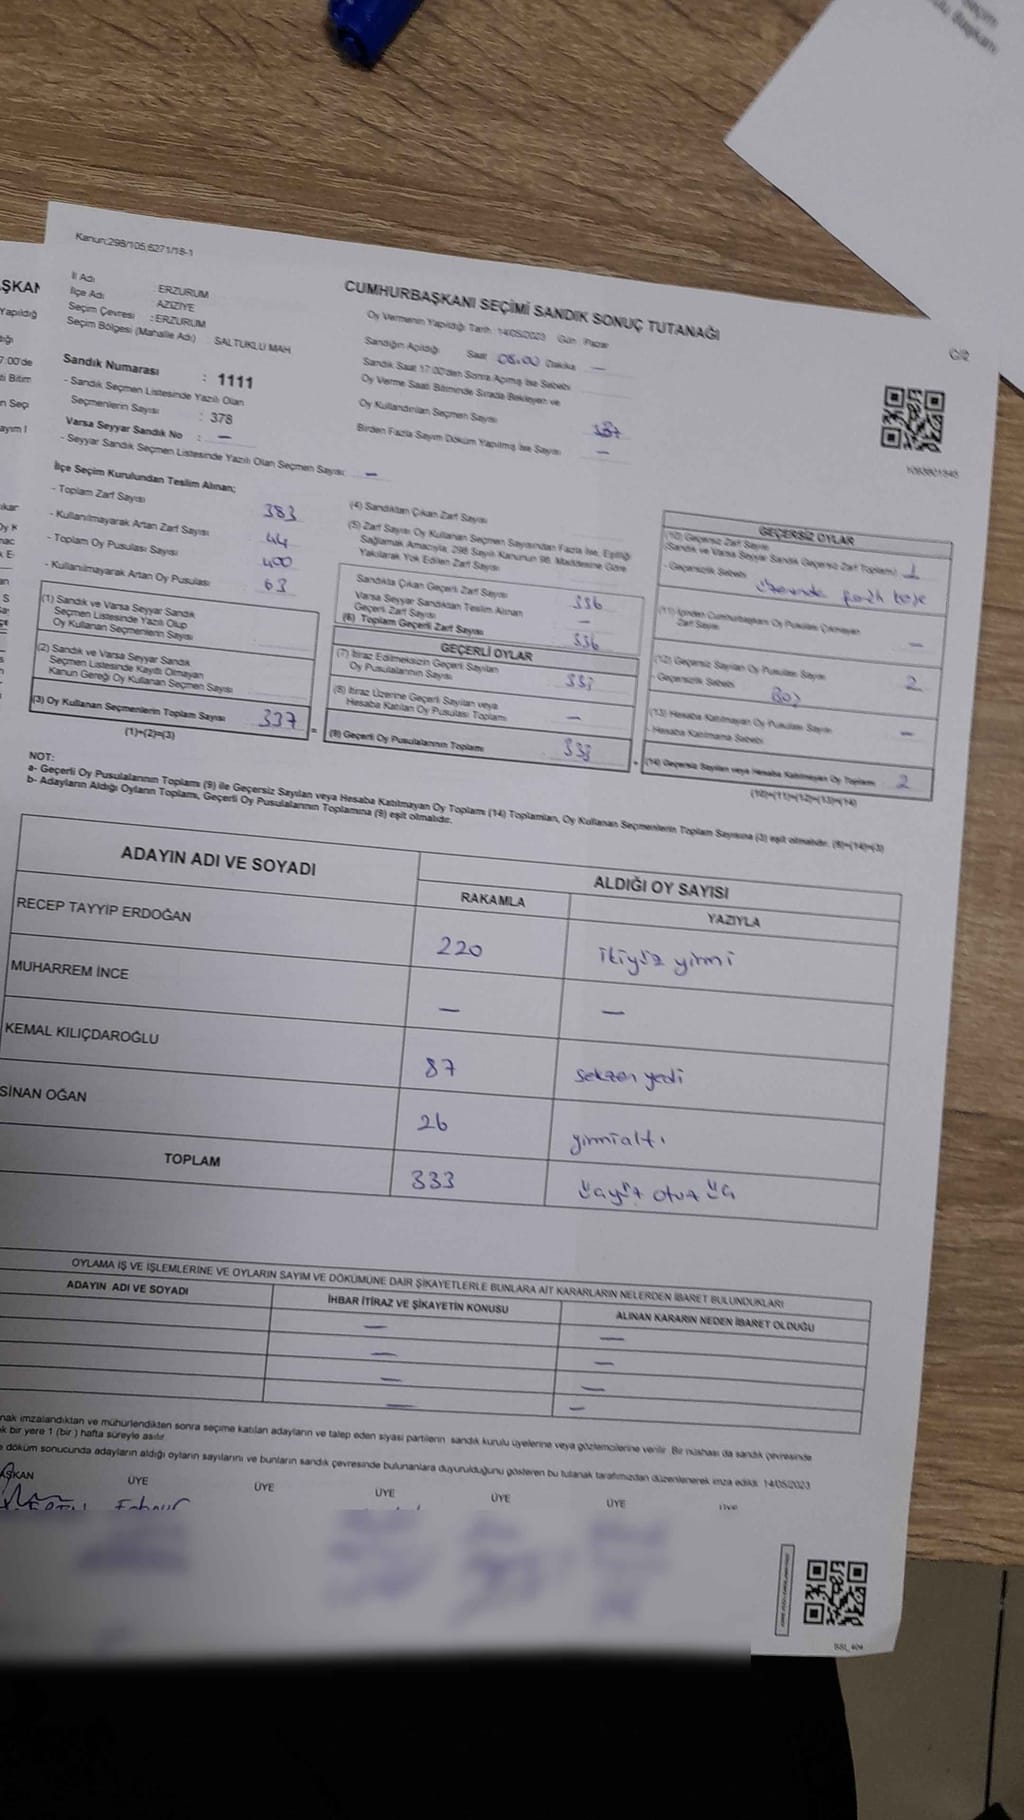 Kanun;298/105;6271/18-1
CUMHURBAŞKANI SEÇİMİ SANDIK SONUÇ TUTANAĞI
C/2
İl Adı ERZURUM
İlçe Adı AZİZİYE
Seçim Çevresi :ERZURUM
Seçim Bölgesi (Mahalle Adı) SALTUKLU MAH
Sandık Numarası : 1111
- Sandık Seçmen Listesinde Yazılı Olan
Seçmenlerin Sayısı : 378
Varsa Seyyar Sandık No : —
- Seyyar Sandık Seçmen Listesinde Yazılı Olan Seçmen Sayısı: —
Oy Vermenin Yapıldığı Tarih 14/05/2023 Gün : Pazar
Sandığın Açıldığı Saat 08.00 Dakika —
Sandık Saat 17:00'den Sonra Açmış İse Sebebi
Oy Verme Saati Bitiminde Sırada Bekleyen ve
Oy Kullandırılan Seçmen Sayısı 337
Birden Fazla Sayım Döküm Yapılmış İse Sayısı —
İlçe Seçim Kurulundan Teslim Alınan;
- Toplam Zarf Sayısı 383
- Kullanılmayarak Artan Zarf Sayısı 44
- Toplam Oy Pusulası Sayısı 400
- Kullanılmayarak Artan Oy Pusulası 63
(1) Sandık ve Varsa Seyyar Sandık
Seçmen Listesinde Yazılı Olup
Oy Kullanan Seçmenlerin Sayısı
(2) Sandık ve Varsa Seyyar Sandık
Seçmen Listesinde Kayıtlı Olmayan
Kanun Gereği Oy Kullanan Seçmen Sayısı
(3) Oy Kullanan Seçmenlerin Toplam Sayısı 337
(1)+(2)=(3)
(4) Sandıktan Çıkan Zarf Sayısı
(5) Zarf Sayısı Oy Kullanan Seçmen Sayısından Fazla İse, Eşitliği
Sağlamak Amacıyla, 298 Sayılı Kanunun 98. Maddesine Göre
Yakılarak Yok Edilen Zarf Sayısı
Sandıkta Çıkan Geçerli Zarf Sayısı 336
Varsa Seyyar Sandıktan Teslim Alınan
Geçerli Zarf Sayısı —
(6) Toplam Geçerli Zarf Sayısı 336
GEÇERLİ OYLAR
(7) İtiraz Edilmeksizin Geçerli Sayılan
Oy Pusulalarının Sayısı 333
(8) İtiraz Üzerine Geçerli Sayılan veya
Hesaba Katılan Oy Pusulası Toplamı —
(9) Geçerli Oy Pusulalarının Toplamı 333
GEÇERSİZ OYLAR
(10) Geçersiz Zarf Sayısı
(Sandık ve Varsa Seyyar Sandık Geçersiz Zarf Toplamı) 1
- Geçersizlik Sebebi
(11) İçinden Cumhurbaşkanı Oy Pusulası Çıkmayan
Zarf Sayısı —
(12) Geçersiz Sayılan Oy Pusulası Sayısı 2
- Geçersizlik Sebebi Boş
(13) Hesaba Katılmayan Oy Pusulası Sayısı —
- Hesaba Katılmama Sebebi
(14) Geçersiz Sayılan veya Hesaba Katılmayan Oy Toplamı 2
(10)+(11)+(12)+(13)=(14)
NOT:
a- Geçerli Oy Pusulalarının Toplamı (9) ile Geçersiz Sayılan veya Hesaba Katılmayan Oy Toplamı (14) Toplamları, Oy Kullanan Seçmenlerin Toplam Sayısına (3) eşit olmalıdır. (9)+(14)=(3)
b- Adayların Aldığı Oyların Toplamı, Geçerli Oy Pusulalarının Toplamına (9) eşit olmalıdır.
ADAYIN ADI VE SOYADI ALDIĞI OY SAYISI
RAKAMLA YAZIYLA
RECEP TAYYİP ERDOĞAN 220 ikiyüz yirmi
MUHARREM İNCE — —
KEMAL KILIÇDAROĞLU 87 seksen yedi
SİNAN OĞAN 26 yirmialtı
TOPLAM 333 üçyüz otuz üç
OYLAMA İŞ VE İŞLEMLERİNE VE OYLARIN SAYIM VE DÖKÜMÜNE DAİR ŞİKAYETLERLE BUNLARA AİT KARARLARIN NELERDEN İBARET BULUNDUKLARI
ADAYIN ADI VE SOYADI İHBAR İTİRAZ VE ŞİKAYETİN KONUSU ALINAN KARARIN NEDEN İBARET OLDUĞU
— —
— —
— —
— —
nak imzalandıktan ve mühürlendikten sonra seçime katılan adayların ve talep eden siyasi partilerin sandık kurulu üyelerine veya gözlemcilerine verilir. Bir nüshası da sandık çevresinde
k bir yere 1 (bir ) hafta süreyle asılır.
döküm sonucunda adayların aldığı oyların sayılarını ve bunların sandık çevresinde bulunanlara duyurulduğunu gösteren bu tutanak tarafımızdan düzenlenerek imza edildi. 14/05/2023
AŞKAN ÜYE ÜYE ÜYE ÜYE ÜYE